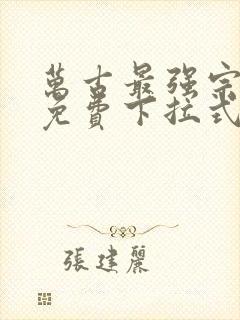 萬古最强宗
免費下拉式
張建麗